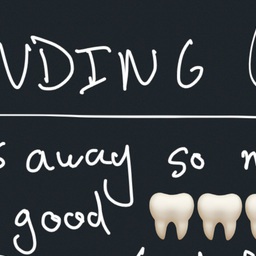 NDING (
s away so n
good 🦷🦷🦷